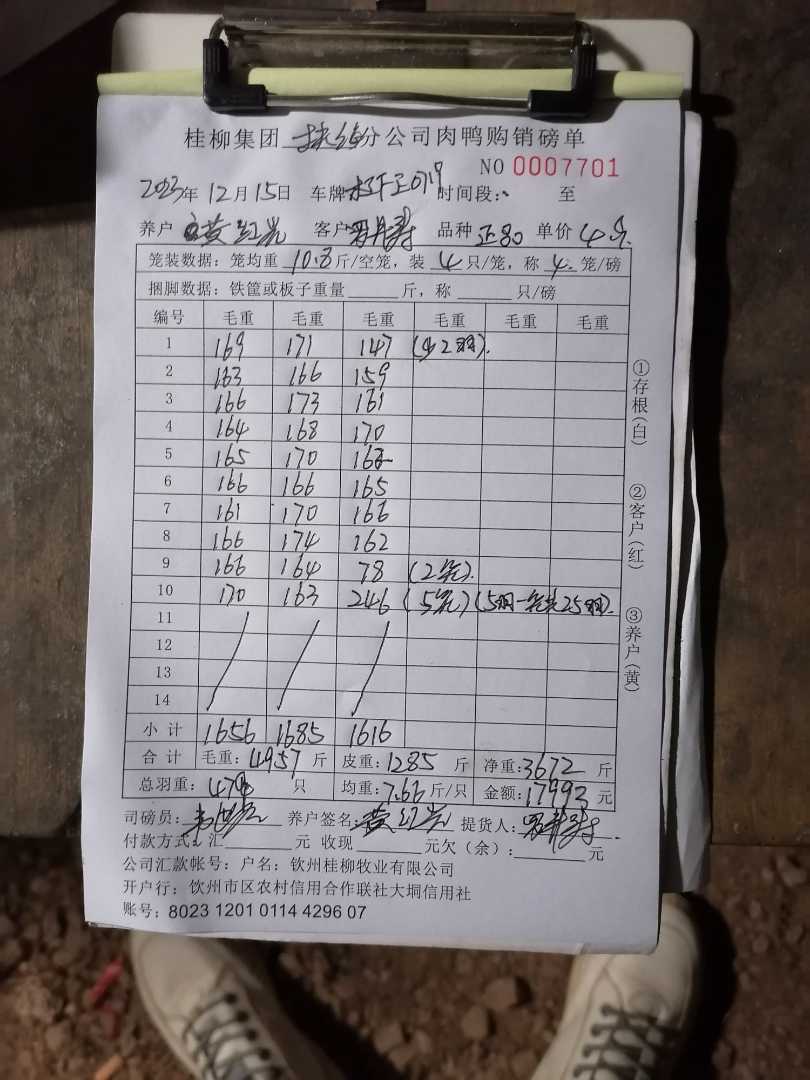 桂柳集团 分公司肉鸭购销磅单
NO 0007701
2023年12月15日 车牌 时间段: 至
养户 黄红光 客户 品种 正90 单价 4.9
笼装数据: 笼均重 10.8 斤/空笼, 装 4 只/笼, 称 4 笼/磅
捆脚数据: 铁筐或板子重量 斤, 称 只/磅
编号 毛重 毛重 毛重 毛重 毛重 毛重
1 169 171 147 (少2羽).
2 163 166 159
3 166 173 161
4 164 168 170
5 165 170 162
6 166 166 165
7 161 170 166
8 166 174 162
9 166 164 78 (2笼).
10 170 163 246 (5笼) (5羽一笼共25羽).
11
12
13
14
小计 1656 1685 1616
合计 毛重: 4957 斤 皮重: 1285 斤 净重: 3672 斤
总羽重: 479 只 均重: 7.66 斤/只 金额: 17993 元
司磅员: 养户签名: 黄红光 提货人:
付款方式: 汇 元 收现 元欠(余): 元
公司汇款帐号: 户名: 钦州桂柳牧业有限公司
开户行: 钦州市区农村信用合作联社大垌信用社
账号: 8023 1201 0114 4296 07
①存根(白)
②客户(红)
③养户(黄)